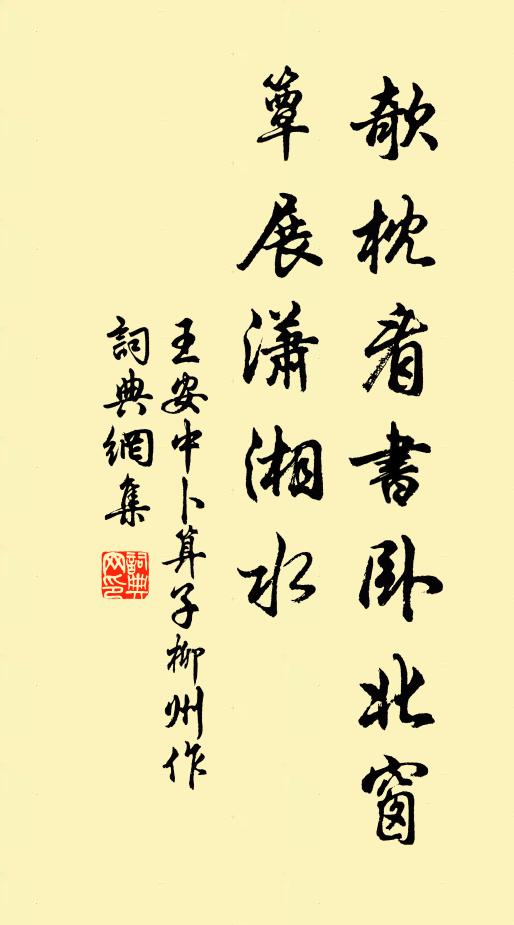 欹枕看書卧北窗
簟展瀟湘水
王安中卜算子柳州作
詞典網集
詞典
网印